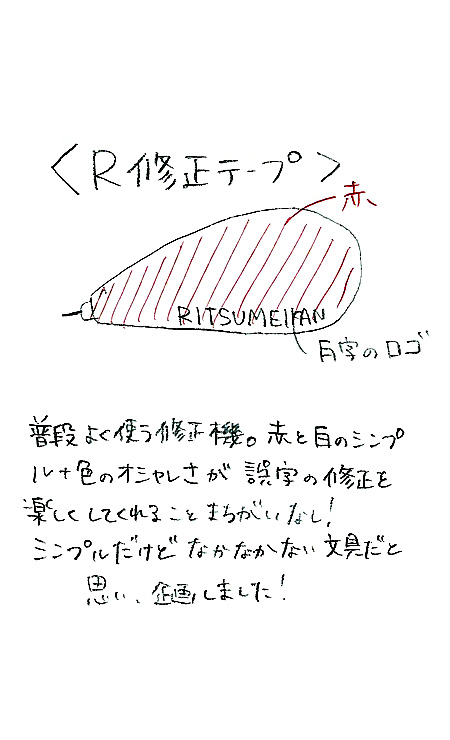 ＜R修正テープ＞
赤
RITSUMEIKAN
白字のロゴ
普段よく使う修正機。赤と白のシンプ
ルナ色のオシャレさが誤字の修正を
楽しくしてくれることまちがいなし!
シンプルだけどなかなかない文具だと
思い、企画しました!